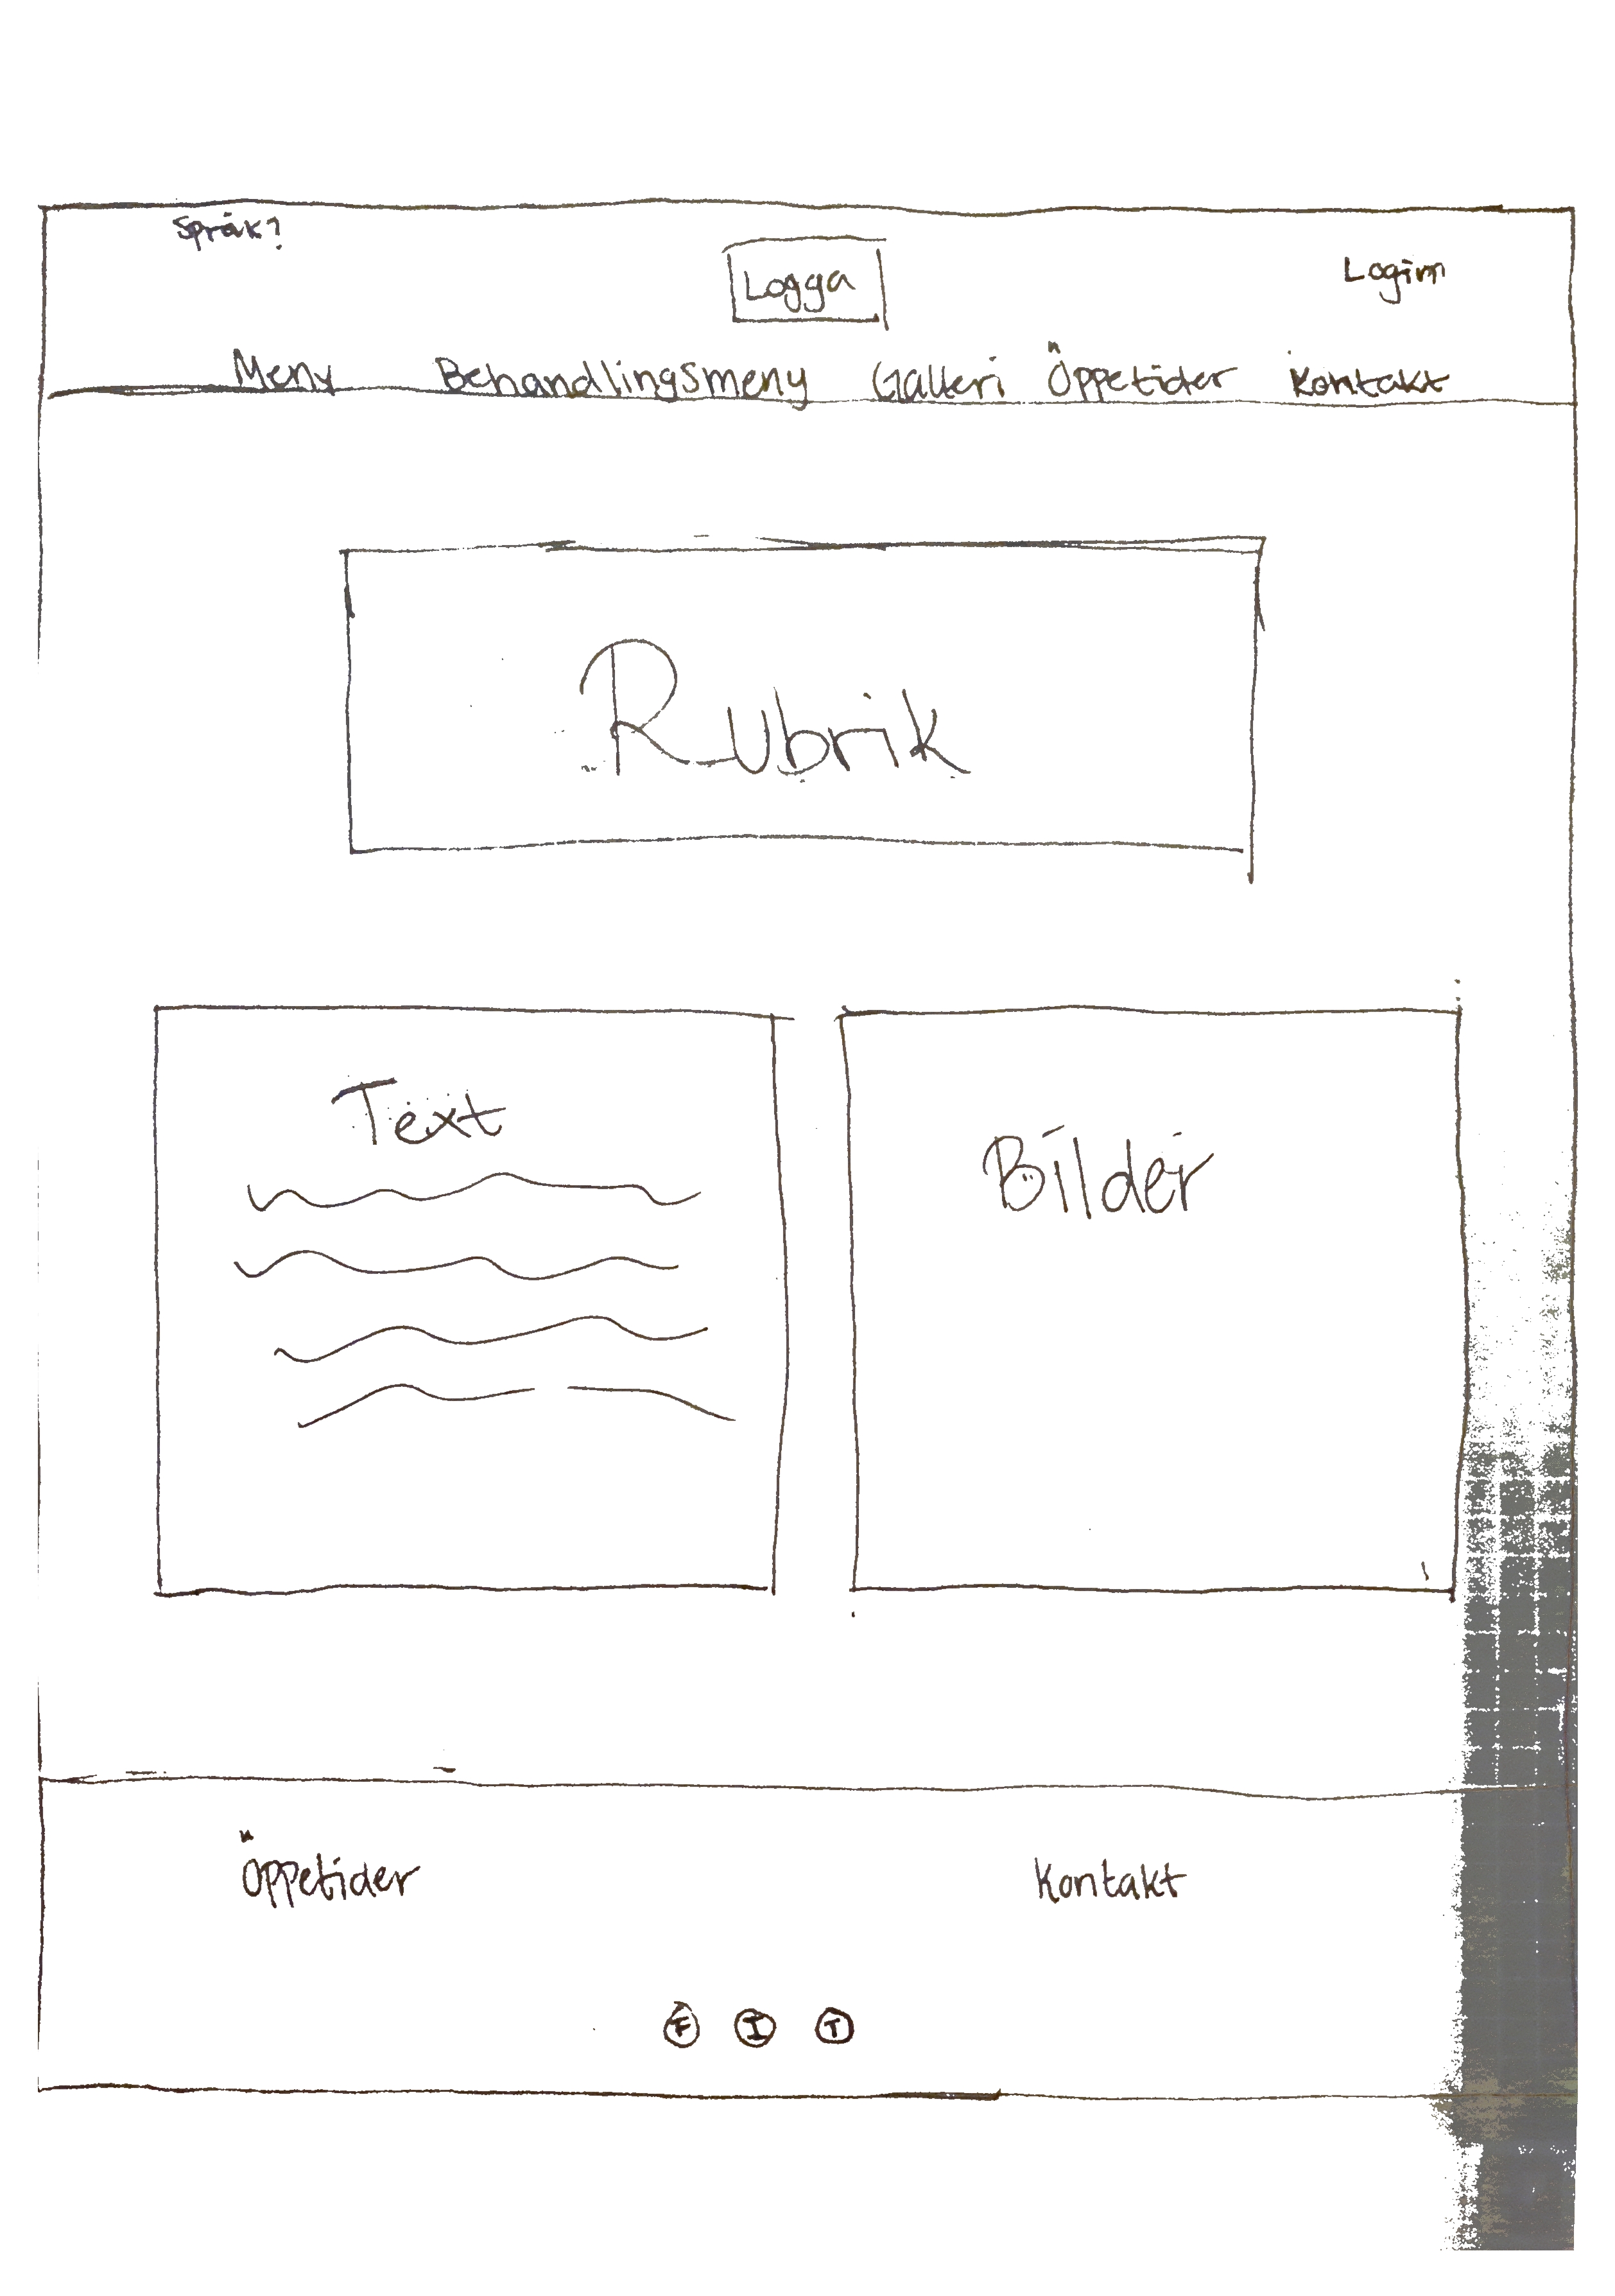 Språk?
Logga
Login
Meny Behandlingsmeny Galleri Öppetider Kontakt
Rubrik
Text
Bilder
Öppetider
Kontakt
F I T